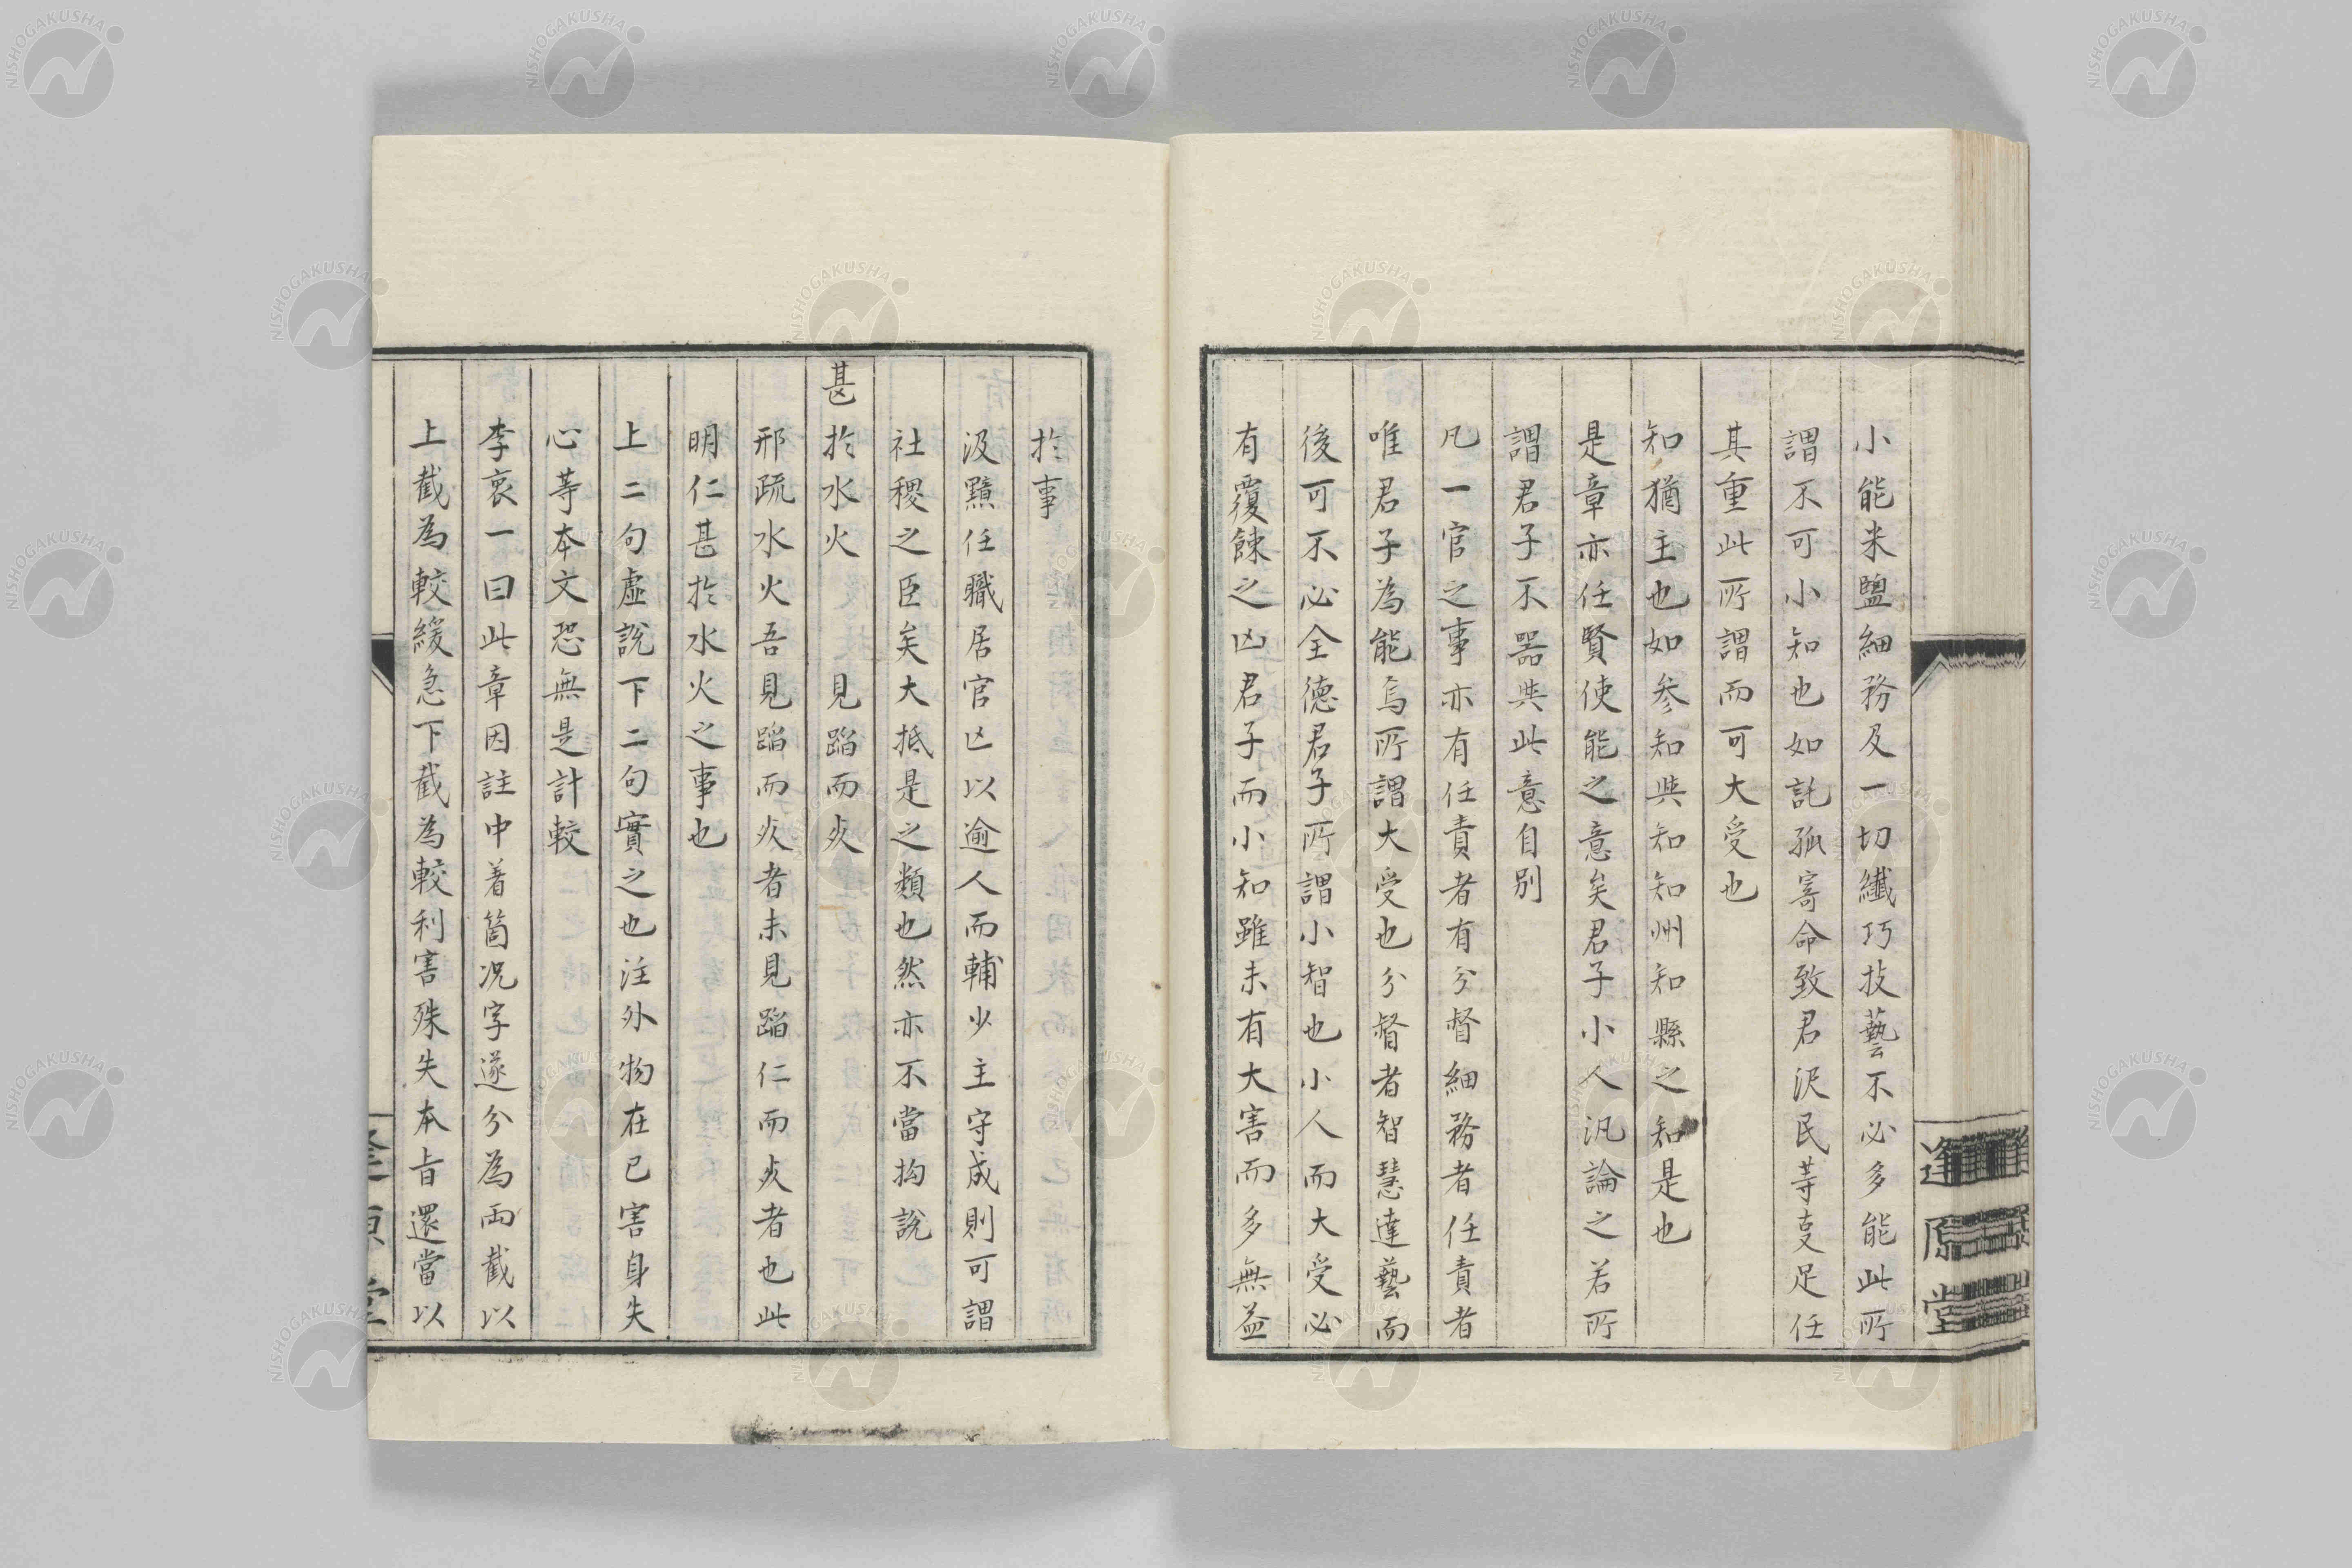 小能米鹽細務及一切纖巧技藝不必多能此所
謂不可小知也如託孤寄命致君沢民等叓足任
其重此所謂而可大受也
知猶主也如参知與知州知縣之知是也
是章亦任賢使能之意矣君子小人汎論之若所
謂君子不器與此意自別
凡一官之事亦有任責者有分督細務者任責者
唯君子為能焉所謂大受也分督者智慧達藝而
後可不必全德君子所謂小智也小人而大受必
有覆餗之凶君子而小知雖未有大害而多無益
於事
汲黯任職居官亾以逾人而輔少主守成則可謂
社稷之臣矣大抵是之類也然亦不當拘說
甚於水火 見蹈而死
邢疏水火吾見蹈而死者未見蹈仁而死者也此
明仁甚於水火之事也
上二句虛說下二句實之也注外物在己害身失
心等本文恐無是計較
李衷一曰此章因註中着箇况字遂分為兩截以
上截為較緩急下截為較利害殊失本旨還當以
逢原堂
NISHOGAKUSHA